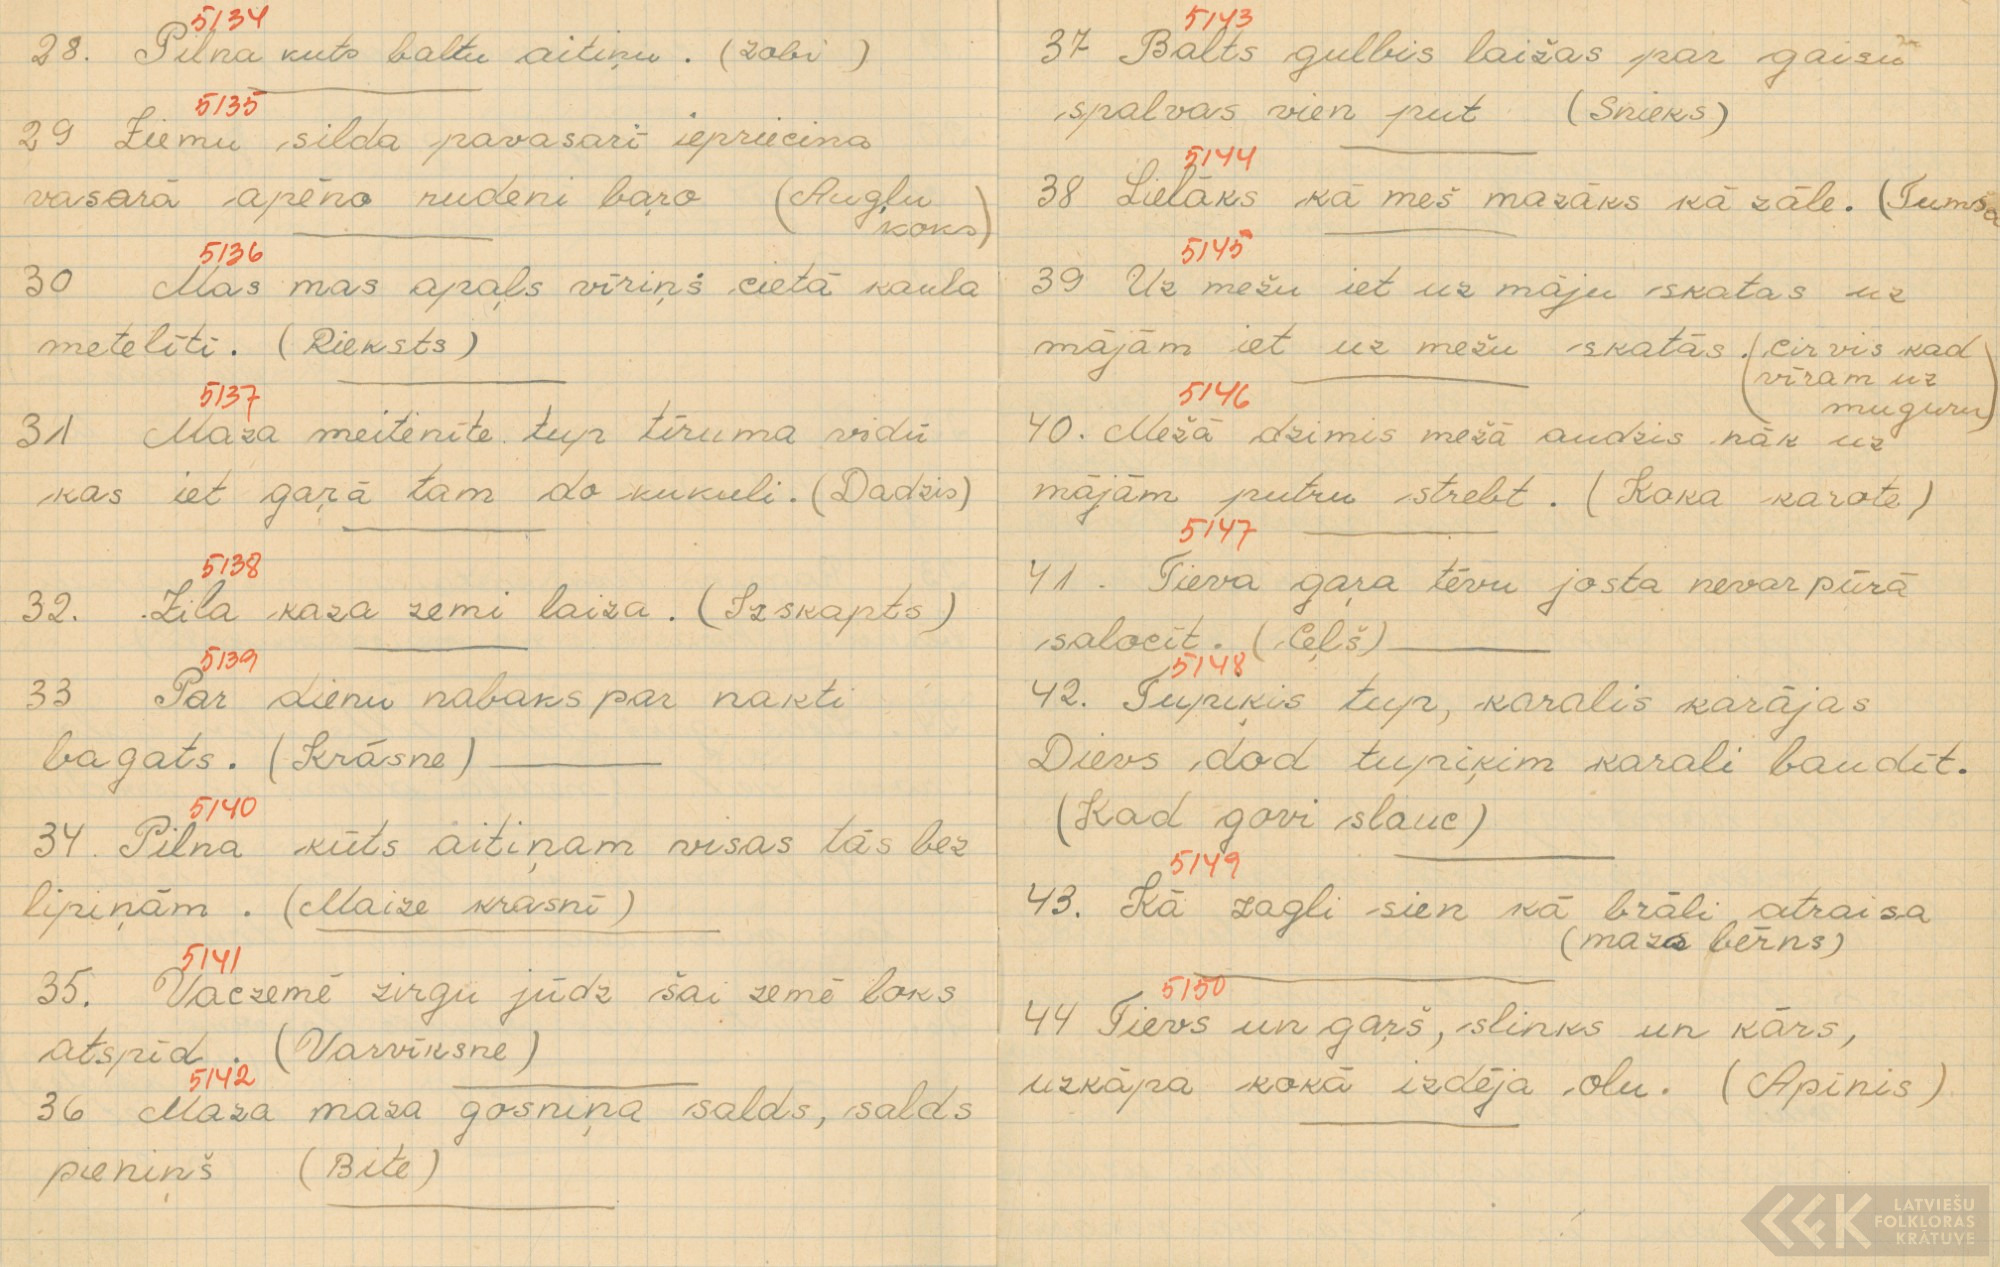 5134
28. Pilna kuts baltu aitiņu. (zobi)
5135
29 Ziemu silda pavasarī iepriecina
vasarā apēno rudeni baŗo (Augļu
koks)
5136
30 Mas mas apaļs vīriņš cietā kaula
metelītī. (Rieksts)
5137
31 Maza meitenīte tup tīruma vidū
kas iet gaŗā tam do kukuli. (Dadzis)
5138
32. Zila kaza zemi laiza. (Izskapts)
5139
33 Par dienu nabaks par nakti
bagats. (Krāsne)
5140
34. Pilna kūts aitiņam visas tās bez
lipiņām. (Maize krasnī)
5141
35. Vaczemē zirgu jūdz šai zemē loks
atspīd. (Varvīksne)
5142
36 Maza maza gosniņa salds, salds
pieniņš (Bite)
5143
37 Balts gulbis laižas par gaisu
spalvas vien put (Snieks)
5144
38 Lielāks kā meš mazāks kā zāle. (Tumsa
5145
39 Uz mežu iet uz māju skatas uz
mājām iet uz mežu skatās. (cirvis kad
vīram uz
muguru)
5146
40. Mežā dzimis mežā audzis nāk uz
mājām putru strebt. (Koka karote)
5147
41. Tieva gaŗa tēvu josta nevar pūrā
salocīt. (Ceļš)
5148
42. Tupiķis tup, karalis karājas
Dievs dod tupiķim karali baudīt.
(Kad govi slauc)
5149
43. Kā zagli sien kā brāli atraisa
(mazs bērns)
5150
44 Tievs un gaŗš, slinks un kārs,
uzkāpa kokā izdēja olu. (Apīnis)
LATVIEŠU
FOLKLORAS
KRĀTUVE